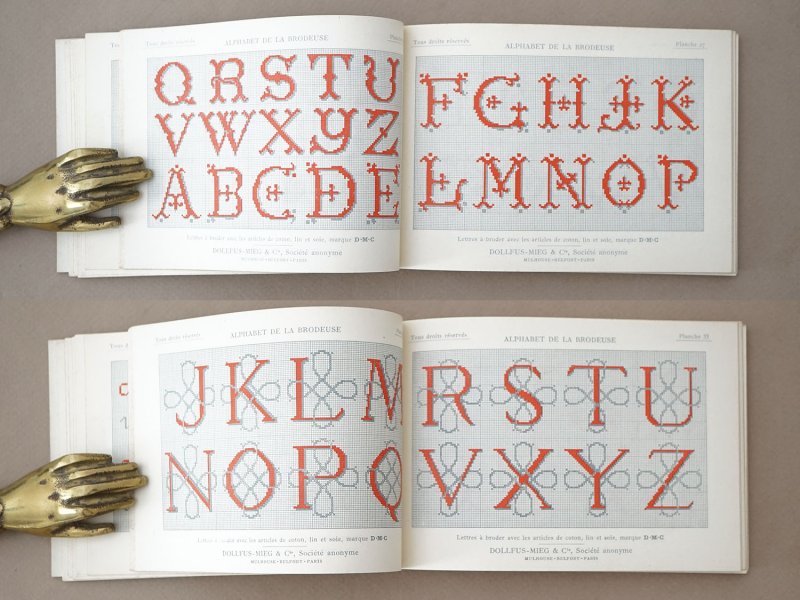 Tous droits réservés
ALPHABET DE LA BRODEUSE
Q R S T U
V W X Y Z
A B C D E
Lettres à broder avec les articles de coton, lin et soie, marque D·M·C
DOLLFUS-MIEG & Cie, Société anonyme
MULHOUSE-BELFORT-PARIS
Tous droits réservés
ALPHABET DE LA BRODEUSE
Planche 27
F G H J K
L M N O P
Lettres à broder avec les articles de coton, lin et soie, marque D·M·C
DOLLFUS-MIEG & Cie, Société anonyme
MULHOUSE-BELFORT-PARIS
Tous droits réservés
ALPHABET DE LA BRODEUSE
J K L M
N O P Q
Lettres à broder avec les articles de coton, lin et soie, marque D·M·C
DOLLFUS-MIEG & Cie, Société anonyme
MULHOUSE-BELFORT-PARIS
Tous droits réservés
ALPHABET DE LA BRODEUSE
Planche 33
R S T U
V X Y Z
Lettres à broder avec les articles de coton, lin et soie, marque D·M·C
DOLLFUS-MIEG & Cie, Société anonyme
MULHOUSE-BELFORT-PARIS